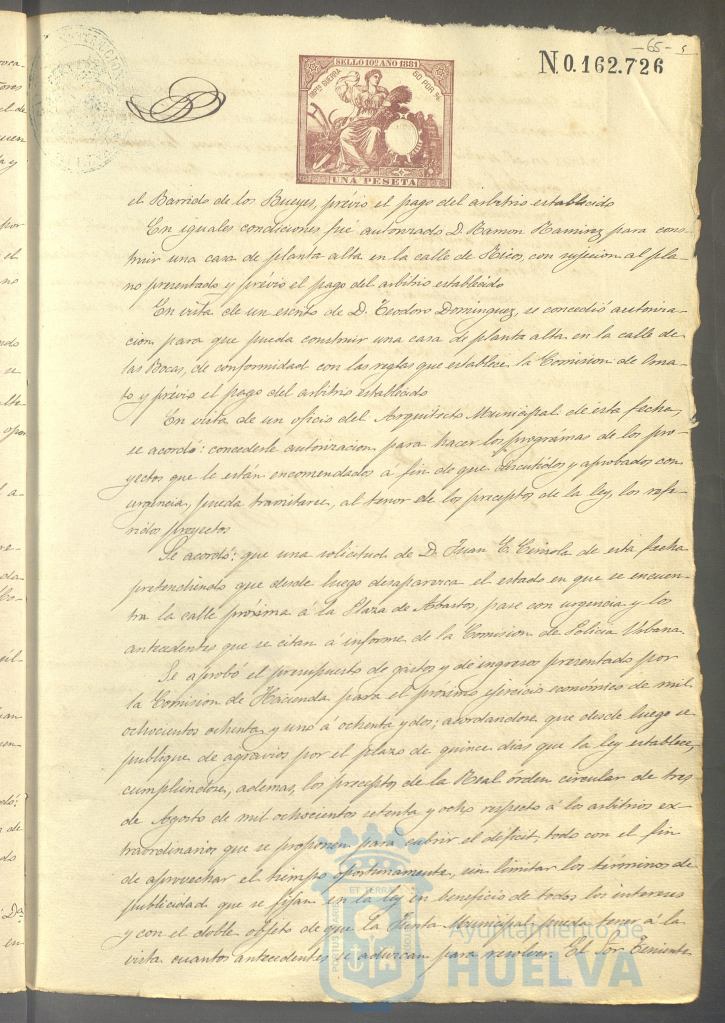 -65- 5
N.0.162.726
SELLO 10º AÑO 1881
IMPTO GUERRA 50 POR %
UNA PESETA
el Barrido de los Bueyes, prévio el pago del arbitrio establecido
En iguales condiciones fué autorizado D. Ramon Ramirez para cons-
truir una casa de planta alta en la calle de Ricos, con sujecion al pla-
no presentado y prévio el pago del arbitrio establecido
En vista de un escrito de D. Teodoro Dominguez, se concedió autoriza-
cion para que pueda construir una casa de planta alta en la calle de
las Bocas, de conformidad con las reglas que establece la Comision de Orna-
to y prévio el pago del arbitrio establecido
En vista de un oficio del Arquitecto Municipal de esta fecha,
se acordó: concederle autorizacion para hacer los prográmas de los pro-
yectos que le están encomendados á fin de que discutidos y aprobados con
urgencia, pueda tramitarse, al tenor de los preceptos de la ley, los refe-
ridos proyectos
Se acordó: que una solicitud de D. Juan E. de esta fecha
pretendiendo que desde luego desaparezca el estado en que se encuen-
tra la calle próxima á la Plaza de Abastos, pase con urgencia y los
antecedentes que se citan á informe de la Comision de Policia Urbana
Se aprobó el presupuesto de gastos y de ingresos presentado por
la Comision de Hacienda para el próximo ejercicio económico de mil
ochocientos ochenta y uno á ochenta y dos; acordandose que desde luego se
publique de agravios por el plazo de quince dias que la ley establece,
cumpliendose, ademas, los preceptos de la Real órden circular de tres
de Agosto de mil ochocientos setenta y ocho respecto á los arbitrios ex-
traordinarios que se proponen para cubrir el déficit, todo con el fin
de aprovechar el tiempo oportunamente, sin limitar los términos de
publicidad que se fijan en la ley en beneficio de todos los intereses
y con el doble objeto de que la Junta Municipal pueda tener á la
vista cuantos antecedentes se aduzcan para resolver. El Sor Teniente
PORTUS MARIS ET TERRAE
Ayuntamiento de
HUELVA